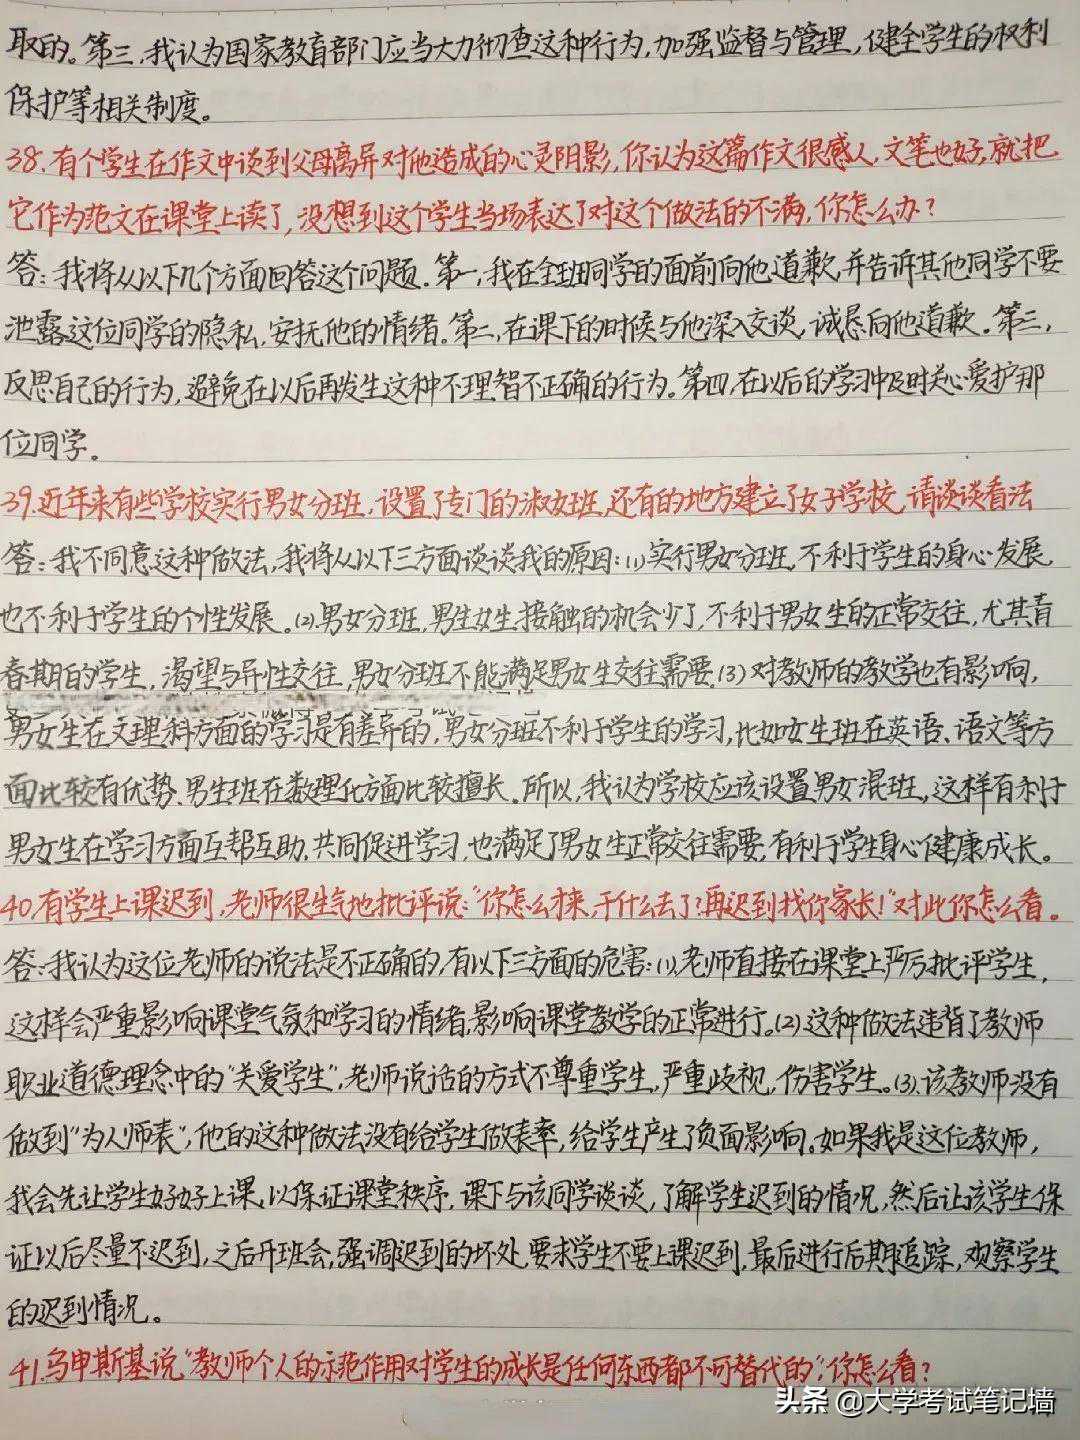 取的。第三，我认为国家教育部门应当大力彻查这种行为，加强监督与管理，健全学生的权利
保护等相关制度。
38.有个学生在作文中谈到父母离异对他造成的心灵阴影，你认为这篇作文很感人，文笔也好，就把
它作为范文在课堂上读了，没想到这个学生当场表达了对这个做法的不满，你怎么办？
答：我将从以下几个方面回答这个问题。第一，我在全班同学的面前向他道歉，并告诉其他同学不要
泄露这位同学的隐私，安抚他的情绪。第二，在课下的时候与他深入交谈，诚恳向他道歉。第三，
反思自己的行为，避免在以后再发生这种不理智不正确的行为。第四，在以后的学习中及时关心爱护那
位同学。
39.近年来有些学校实行男女分班，设置了专门的淑女班，还有的地方建立了女子学校，请谈谈看法
答：我不同意这种做法，我将从以下三方面谈谈我的原因：(1)实行男女分班，不利于学生的身心发展，
也不利于学生的个性发展。(2)男女分班，男生女生接触的机会少了，不利于男女生的正常交往，尤其青
春期的学生，渴望与异性交往，男女分班不能满足男女生交往需要。(3)对教师的教学也有影响，
男女生在文理科方面的学习是有差异的，男女分班不利于学生的学习，比如女生班在英语、语文等方
面比较有优势，男生班在数理化方面比较擅长。所以，我认为学校应该设置男女混班，这样有利于
男女生在学习方面互帮互助，共同促进学习，也满足了男女生正常交往需要，有利于学生身心健康成长。
40.有学生上课迟到，老师很生气地批评说：“你怎么才来，干什么去了？再迟到找你家长！”对此你怎么看。
答：我认为这位老师的说法是不正确的，有以下三方面的危害：(1)老师直接在课堂上严厉批评学生，
这样会严重影响课堂气氛和学习的情绪，影响课堂教学的正常进行。(2)这种做法违背了教师
职业道德理念中的“关爱学生”，老师说话的方式不尊重学生，严重歧视，伤害学生。(3)、该教师没有
做到“为人师表”，他的这种做法没有给学生做表率，给学生产生了负面影响。如果我是这位教师，
我会先让学生好好上课，以保证课堂秩序，课下与该同学谈谈，了解学生迟到的情况，然后让该学生保
证以后尽量不迟到，之后开班会，强调迟到的坏处，要求学生不要上课迟到，最后进行后期追踪，观察学生
的迟到情况。
41.乌申斯基说“教师个人的示范作用对学生的成长是任何东西都不可替代的”，你怎么看？
头条 @大学考试笔记墙